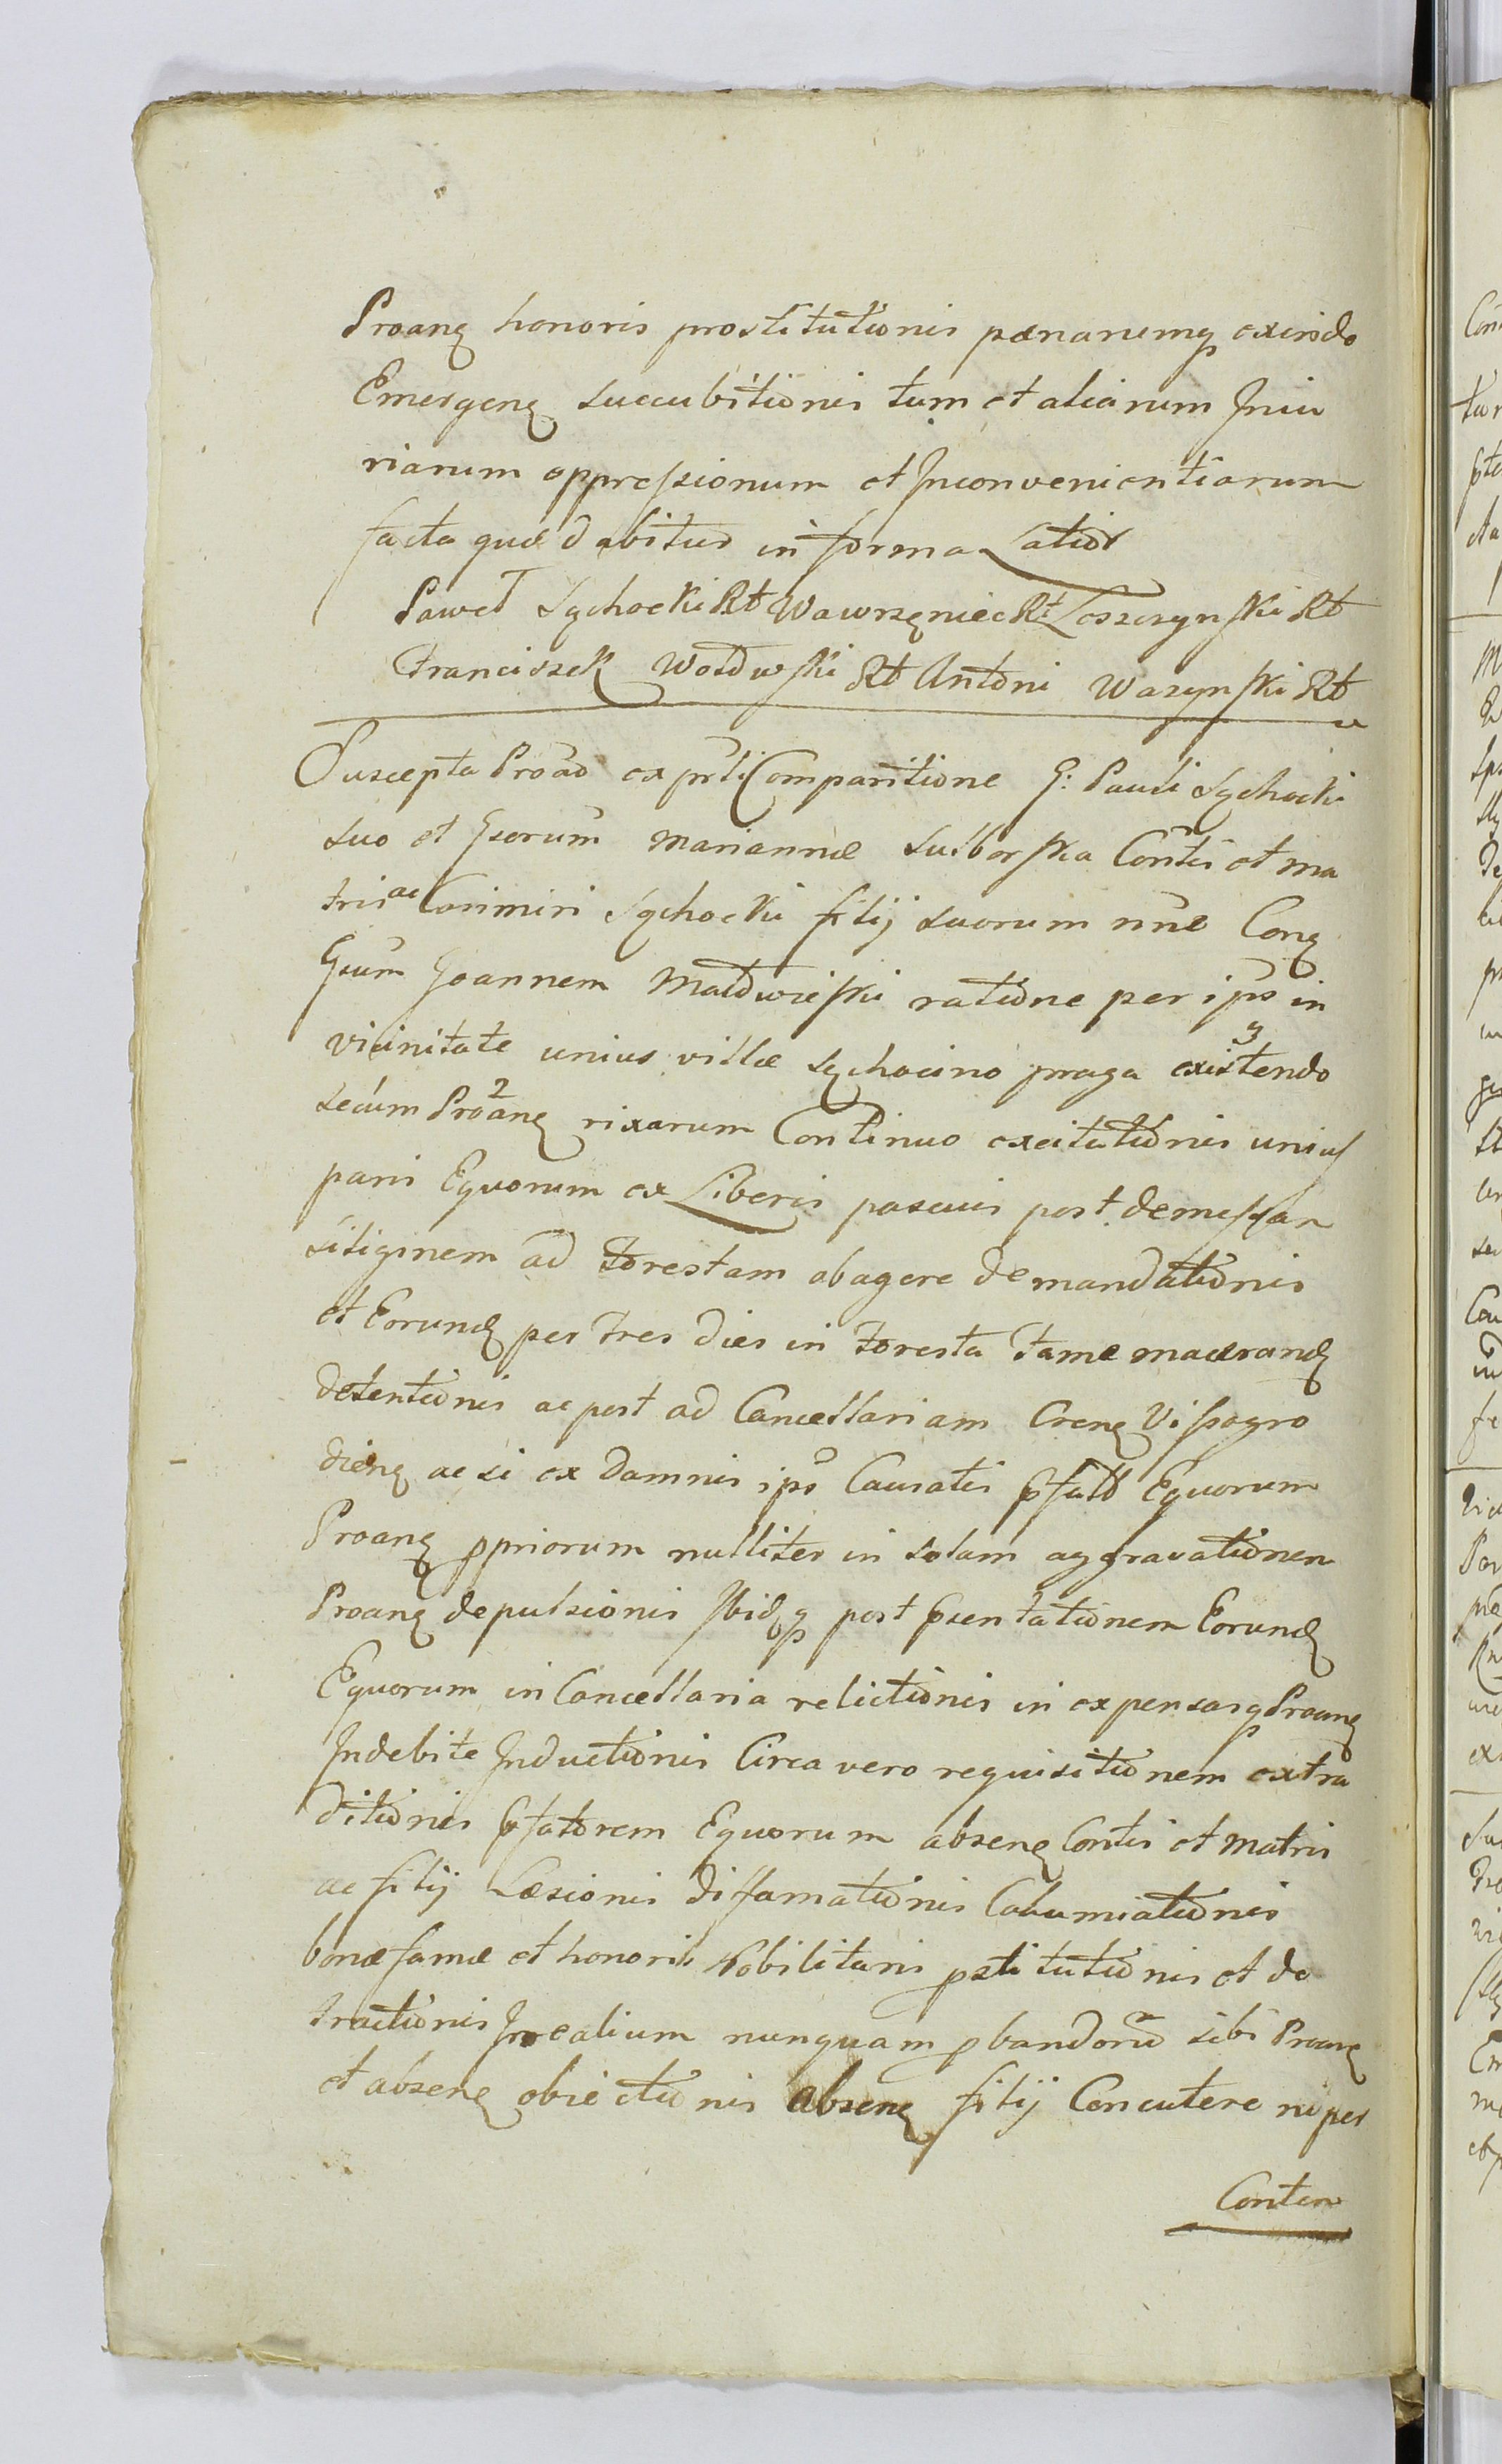 Proanę honoris prostitutionis pœnarumq exindo
Emergenę succubitionis tum et aliarum Iniu
riarum oppressionum et Inconvenientiarum
facta quæ dabitur in forma Latior
Paweł Sychocki Rt Wawrzęniec Rt Leszczynski Rt
Franciszek Wołowski Rt Antoni Wazynski Rt
Suscepta Proão ex prti Comparitione G: Pauli Sychocki
suo et Gsorum Mariannæ Sulborska Contis et ma
tris ac Casimiri Sychocki filij suorum nne Conę
Gsum Joannem Małowieski ratione per ipo in
vicinitate unius villæ Sychocino praga existendo
3
secum Proanę rixarum Continuo excitationis unius
2
paris Equorum ex Liberis pascuis post demessan
siliginem ad Forestam abagere demandationis
et Eorundę per tres dies in Foresta fame macerandę
detentionis ac post ad Cancellariam Crenę Vissogro
dienę ac si ex damnis ipo Causatis pfatt Equorum
Proanę ppriorum nulliter in solam aggravationem
Proanę depulsionis Ibidęq post psentationem Eorundę
Equorum in Cancellaria relictionis in expensasq Proanę
Indebite Inductionis Circa vero requisitionem extra
ditionis pfatorem Equorum absenę Contis et Matris
ac filij Læsionis diffamationis Calumniationis
bonæ famæ et honoris Nobilitaris pstitutionis et de
tractionis Irrealium nunquam pbandorũ sibi Proanę
et absenę obiectionis absenę filij Concutere ni per
Conten